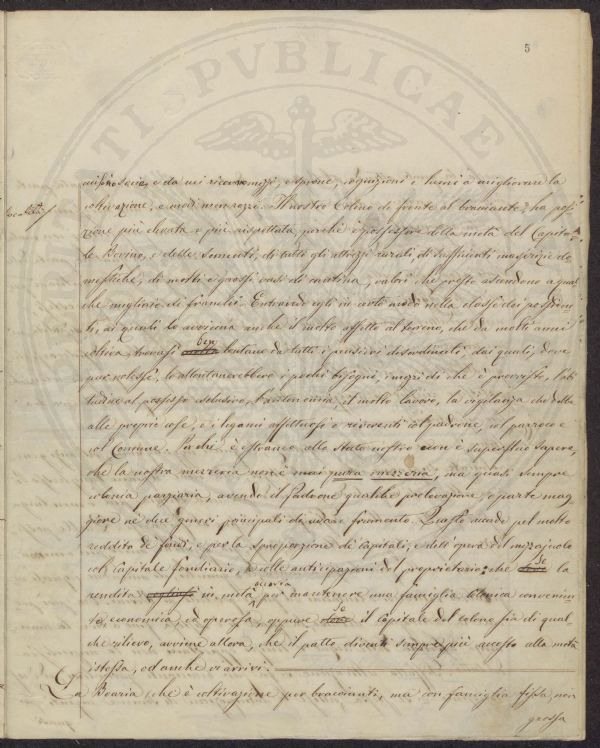 5
nissono socie, e da cui ricevano mezzi, e sprone, cognizioni e lumi a migliorare la
coltivazione, e modi meno rozzi. Il nostro Colono di fronte al bracciante, ha posi
zione più elevata e più rispettata, perchè è possessore della metà del Capita
le Bovino, e delle sementi, di tutti gli attrezzi rurali, di sufficienti masserizie do
mestiche, di molti e grossi vasi di cantina, valori che presto ascendono a qual
che migliaio di franchi. Entrando egli in certo modo nella classe dei possiden
ti, ai quali lo avvicina anche il molto affetto al terreno, che da molti anni
coltiva, trovasi ben lontano da tutti i pensieri disordinati, dai quali, dove
pur volesse, lo allontanerebbero i pochi bisogni, in ogni di che è provvisto, l'abi
tudine al possesso esclusivo, l'autonomia, il molto lavoro, la vigilanza che debbe
alle proprie cose, e i legami affettuosi e riverenti col padrone, col parroco e
col Comune. Perchè è estraneo allo Stato nostro non è superfluo sapere,
che la nostra mezzeria non è mai pura mezzeria, ma quasi sempre
colonia parziaria, avendo il padrone qualche prelevazione, o parte mag
giore ne' due generi principali di uva e frumento. Questo accade pel molto
reddito de' fondi, e per la sproporzione di capitali, e dell'opera del mezzajuolo
col Capitale fondiario, e colle anticipazioni del proprietario: che se la
rendita in metà avaria per mantenere una famiglia colonica convenien
te, economica, ed operosa, oppure se il capitale del colono sia di qual
che rilievo, avviene allora, che il patto diventi sempre più accosto alla metà
istessa, ed anche vi arrivi.
La Boaria, che è coltivazione per braccianti, ma con famiglia fissa, non
grossa